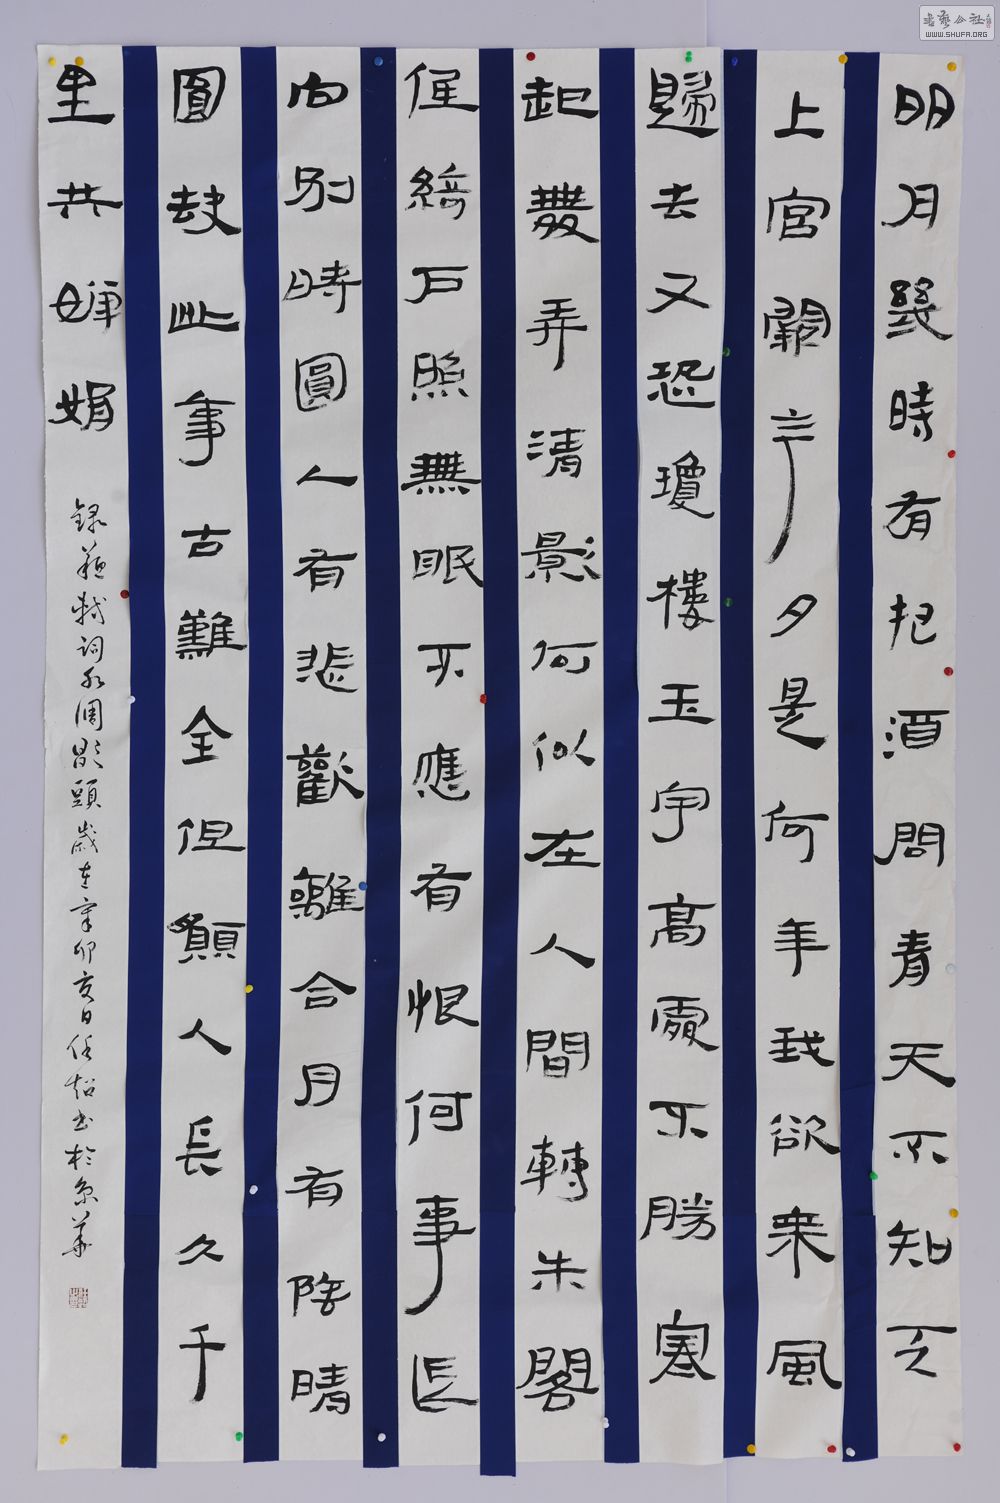 明月幾時有把酒問青天不知天
上宮闕今夕是何年我欲乘風
歸去又恐瓊樓玉宇高處不勝寒
起舞弄清影何似在人間轉朱閣
低綺戶照無眠不應有恨何事長
向別時圓人有悲歡離合月有陰晴
圓缺此事古難全但願人長久千
里共嬋娟
録蘇軾詞水調歌頭歲在辛卯夏日任超書於京華
書藝公社
WWW.SHUFA.ORG